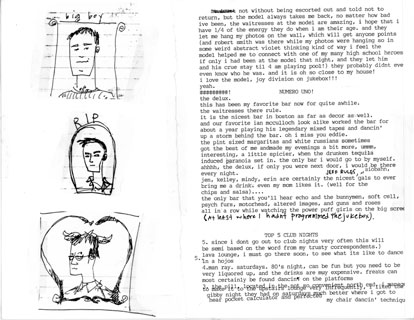 big boy
RIP
not without being escorted out and told not to
return, but the model always takes me back, no matter how bad
ive been, the waitresses at the model are amazing, i hope that i
have 1/4 of the energy they do when i am their age. and they
let me hang my photos on the wall, which will get anyone points
(and robert smith was there while my photos were hanging so in
some weird abstract violet thinking kind of way i feel the
model helped me to connect with one of my many high school heroes
if only i had been at the model that night, and they let him
and his crue stay til 4 am playing pool!) they probably didnt eve
even know who he was. and it is oh so close to my house!
i love the model. joy division on jukebox!!!
yeah.
NUMERO UNO!
the delux.
this has been my favorite bar now for quite awhile.
the waitresses there rule.
it is the nicest bar in boston as far as decor as well.
and our favorite ian mcculloch look alike worked the bar for
about a year playing his legendary mixed tapes and dancin'
up a storm behind the bar. oh i miss you eddie.
the pint sized margaritas and white russians sometimes
got the best of me andmade my evenings a bit more, ummm,
interesting, a little spicier, when the drunken tequila
induced paranoia set in. the only bar i would go to by myself.
ahhhh, the delux, if only you were next door, i would be there
every night. JEFF RULES, siobahn,
jen, kelley, mindy, erin are certainly the nicest gals to ever
bring me a drink. even my mom likes it. (well for the
chips and salsa)....
the only bar that you'll hear echo and the bunnymen, soft cell,
psych furs, motorhead, altered images, and guns and roses
all in a row while watching the power puff girls on the big screen
(at least where i hadn't programmed the jukebox).
TOP 5 CLUB NIGHTS
5. since i dont go out to club nights very often this will
be semi based on the word from my trusty correspondents.)
lava lounge, i must go there soon, to see what its like to dance
in a hojos
4.man ray. saturdays. 80's night. can be fun but you need to be
very liquored up, and the drinks are may expensive. freaks can
most certainly be found dancin' on the platforms
gibby night they had on saturdays
head pocket calculator and perfected my chair dancin' techniqu